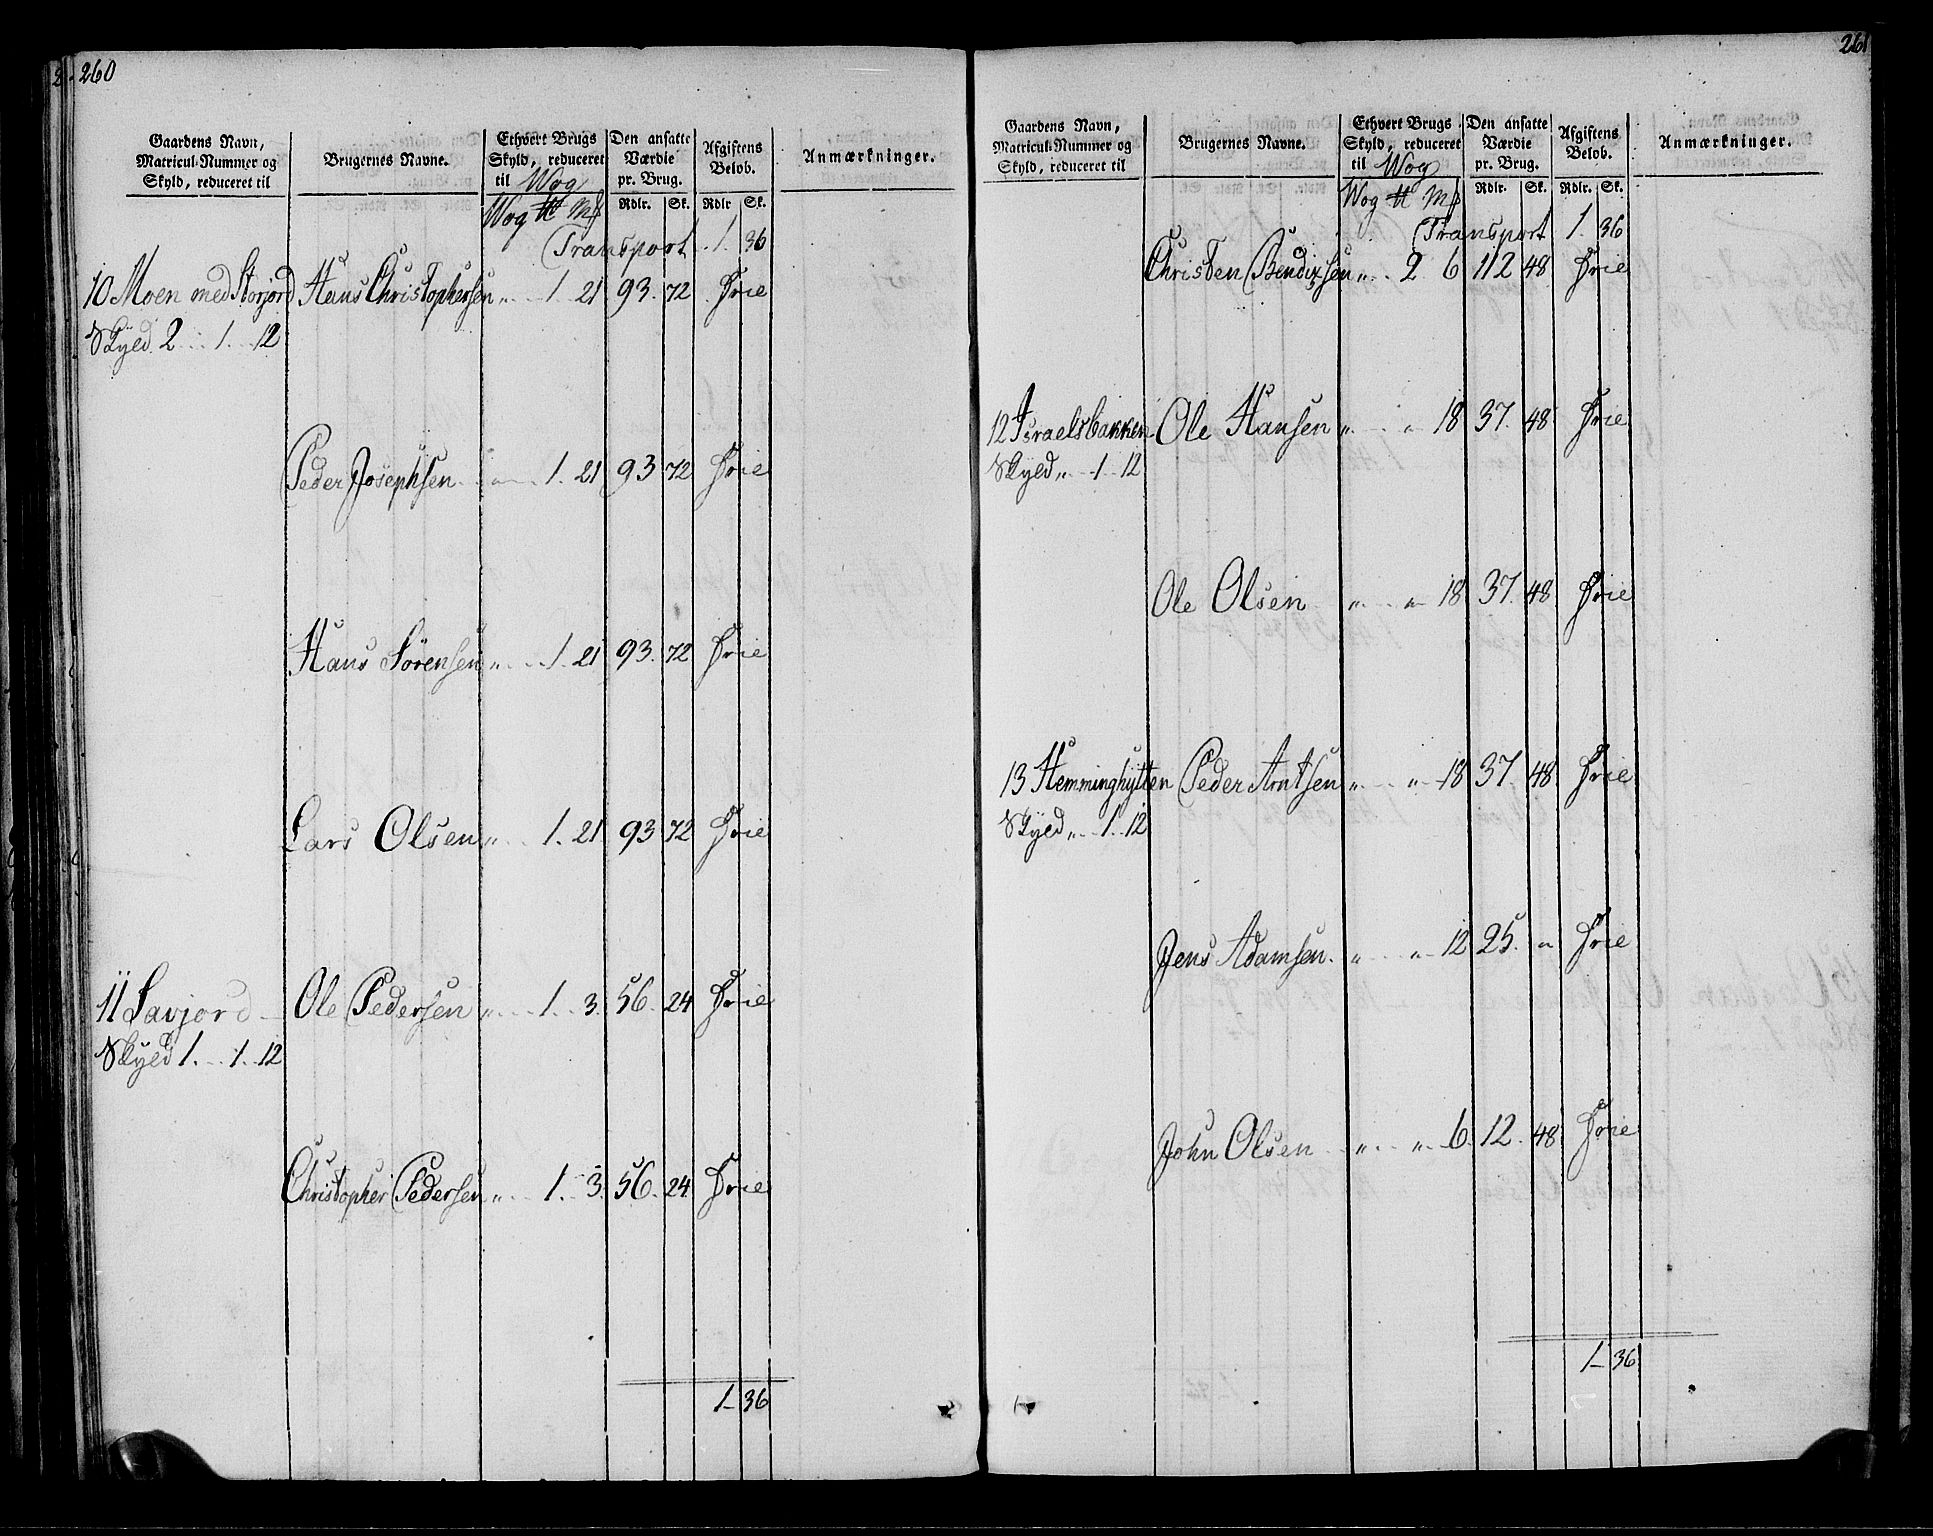 260
Gaardens Navn, Matricul-Nummer og Skyld, reduceret til | Brugernes Navne. | Ethvert Brugs Skyld, reduceret til Wog | Den ansatte Værdie pr. Brug. | Afgiftens Beløb. | Anmærkninger.
Wog ℔ Mk | Rdlr. | Sk. | Rdlr | Sk.
Transport 1. 36
10 Moen med Storjord Hans Christophersen „ 1 21 93. 72 Frie
Skyld 2 1 12
Peder Josephsen „ 1. 21 93 72 Frie
Hans Sörensen „ 1. 21 93. 72 Frie
Lars Olsen „ 1. 21 93 72 Frie
11 Lavjord Ole Pedersen „ 1. 3. 56. 24 Frie
Skyld 1. 1. 12
Christopher Pedersen „ 1. 3. 56. 24 Frie
1 36
261
Gaardens Navn, Matricul-Nummer og Skyld, reduceret til | Brugernes Navne. | Ethvert Brugs Skyld, reduceret til Wog | Den ansatte Værdie pr. Brug. | Afgiftens Beløb. | Anmærkninger.
Wog ℔ Mk | Rdlr. | Sk. | Rdlr. | Sk.
Transport 1. 36
Christen Bendixsen „ 2 6 112 48 Frie
12 Israelsbakken Ole Hansen „ „ 18 37. 48 Frie
Skyld „ 1 12
Ole Olsen „ „ 18 37. 48 Frie
13 Hemminghytten Peder Arntsen „ „ 18 37. 48 Frie
Skyld „ 1. 12
Jens Adamsen „ „ 12 25. „ Frie
John Olsen „ „ 6. 12. 48 Frie
1 36